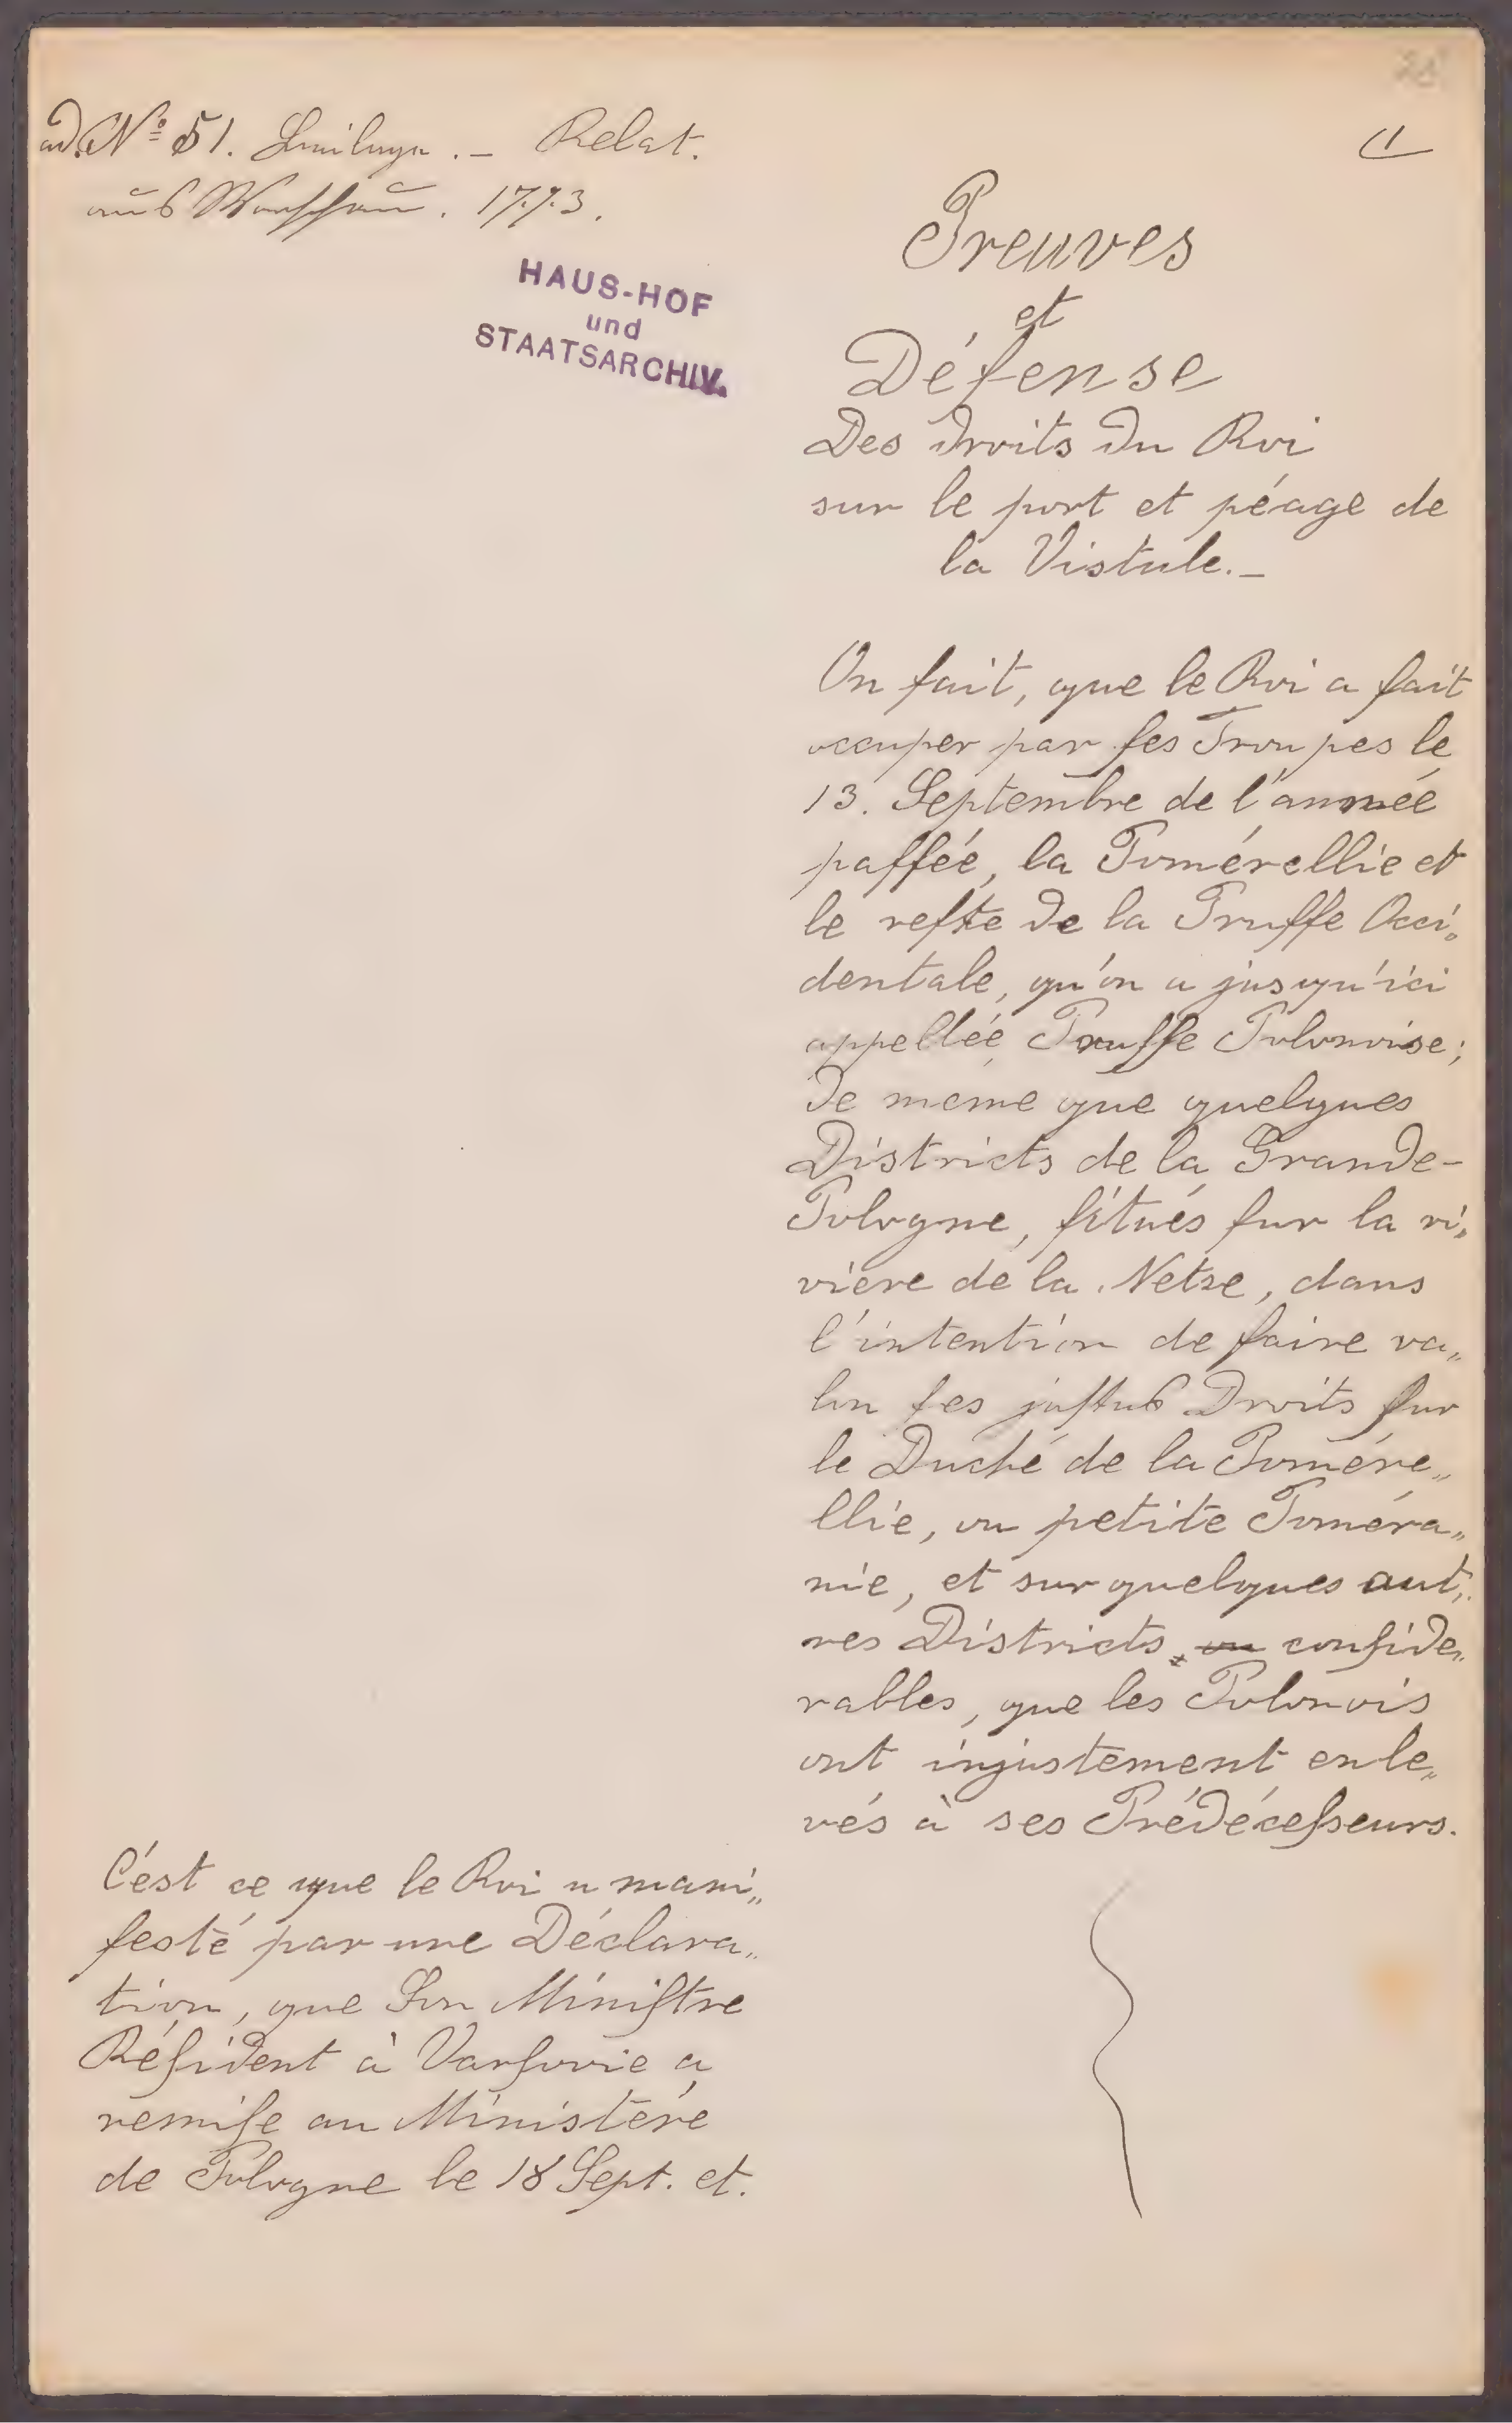 ad. Nº 51. Beilage. – Relat.
aus Warschau. 1773.
HAUS-HOF
und
STAATSARCHIV.
Preuves
et
Défense
Des Droits Du Roi
sur le port et péage de
la Vistule.–
On fait, que le Roi a fait
occuper par ses Troupes le
13. Septembre de l'année
passée, la Pomérellie et
le reste de la Prusse Occi„
dentale, qu'on a jusqu'ici
appellée Prusse Polonoise;
De meme que quelques
Districts de la Grande-
Pologne, situés sur la ri„
viere de la Netze, dans
l'intention de faire va„
loir ses justes Droits sur
le Duché de la Pomére„
llie, ou petite Poméra„
nie, et sur quelques aut„
res Districts conside„
rables, que les Polonois
ont injustement enle„
vés à ses Prédécesseurs.
C'est ce que le Roi a mani„
festé par une Déclara„
tion, que Son Ministre
Résident à Varsovie a
remise au Ministére
de Pologne le 18 Sept. et.